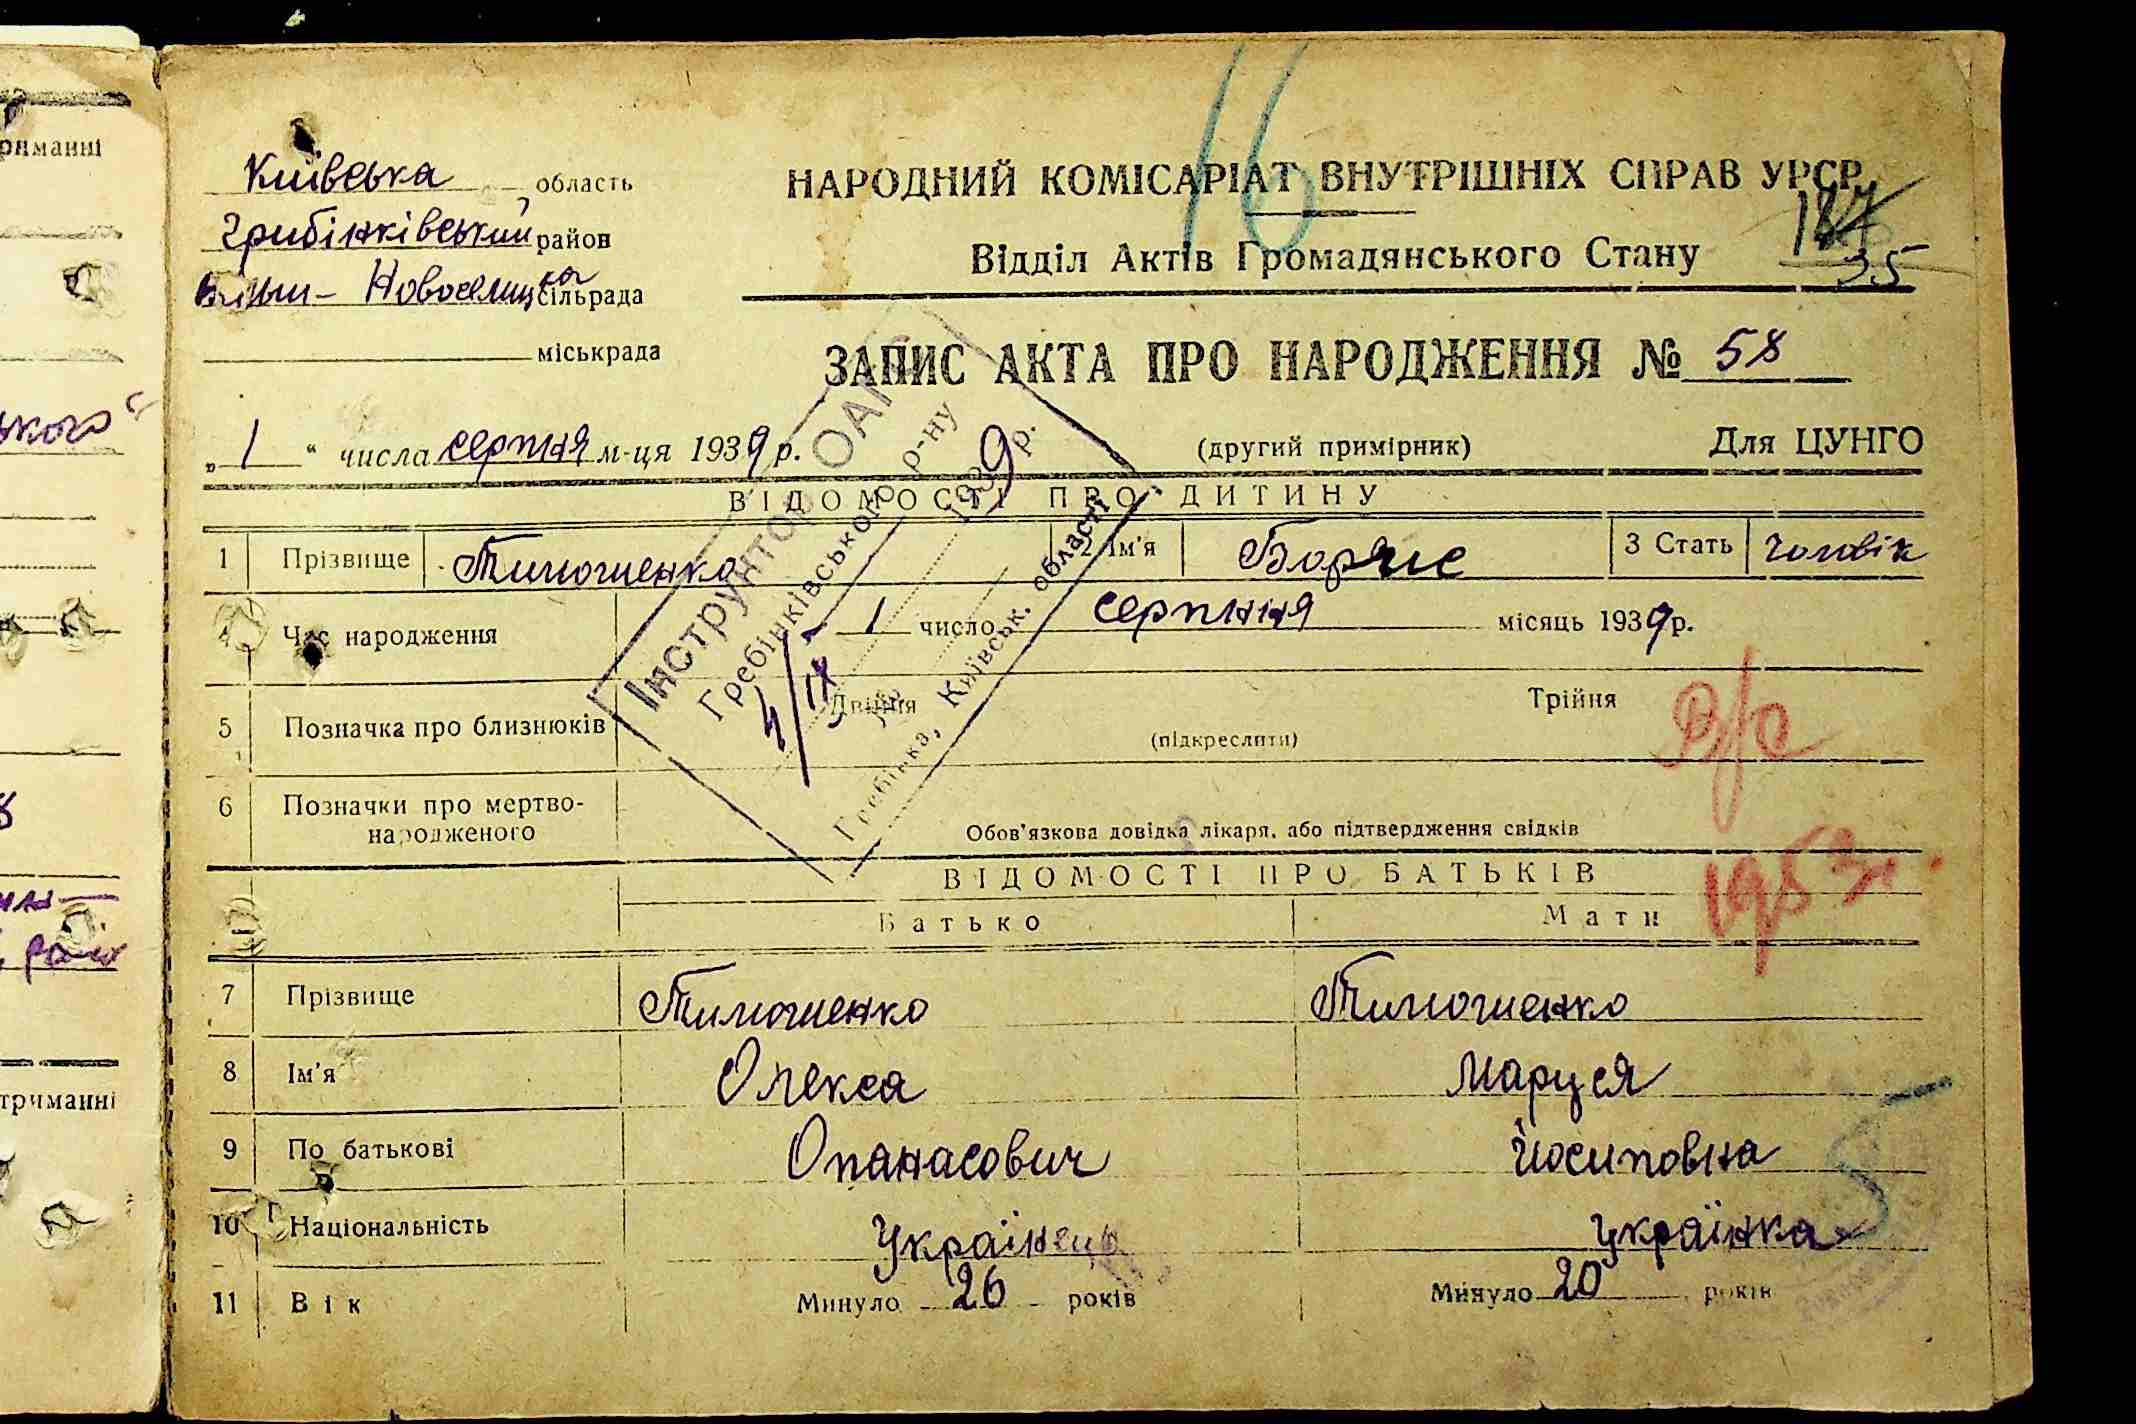 Київська область
Грибінківський район
Новоселицька сільрада
міськрада
НАРОДНИЙ КОМІСАРІАТ ВНУТРІШНІХ СПРАВ УРСР
16
Відділ Актів Громадянського Стану
35
ЗАПИС АКТА ПРО НАРОДЖЕННЯ № 58
„1“ числа серпня м-ця 1939 р.
(другий примірник)
Для ЦУНГО
ВІДОМОСТІ ПРО ДИТИНУ
1 Прізвище Тимошенко 2 Ім'я Борис 3 Стать чоловік
4 Час народження 1 число серпння місяць 1939 р.
5 Позначка про близнюків Двійня Трійня
(підкреслити)
6 Позначки про мертво-
народженого
Обов'язкова довідка лікаря, або підтвердження свідків
Інструктор ОАГС
Гребінківського р-ну
4/IX 1939 р.
Гребінка, Київськ. області
Р/с
1953 г.
ВІДОМОСТІ ПРО БАТЬКІВ
Батько Мати
7 Прізвище Тимошенко Тимошенко
8 Ім'я Олекса Маруся
9 По батькові Опанасович Йосиповна
10 Національність Українець Українка
11 Вік Минуло 26 років Минуло 20 років
риманні
ького“
триманні